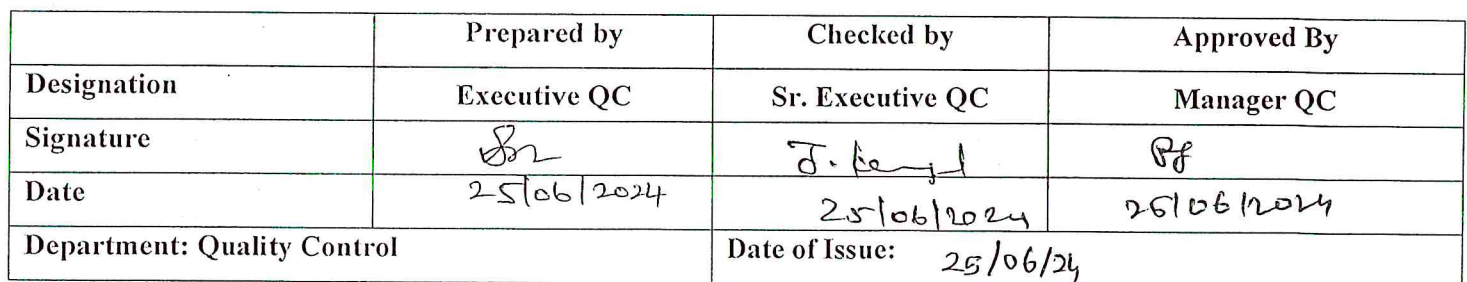 Prepared by Checked by Approved By
Designation Executive QC Sr. Executive QC Manager QC
Signature
Date 25/06/2024 25/06/2024 25/06/2024
Department: Quality Control Date of Issue: 25/06/24